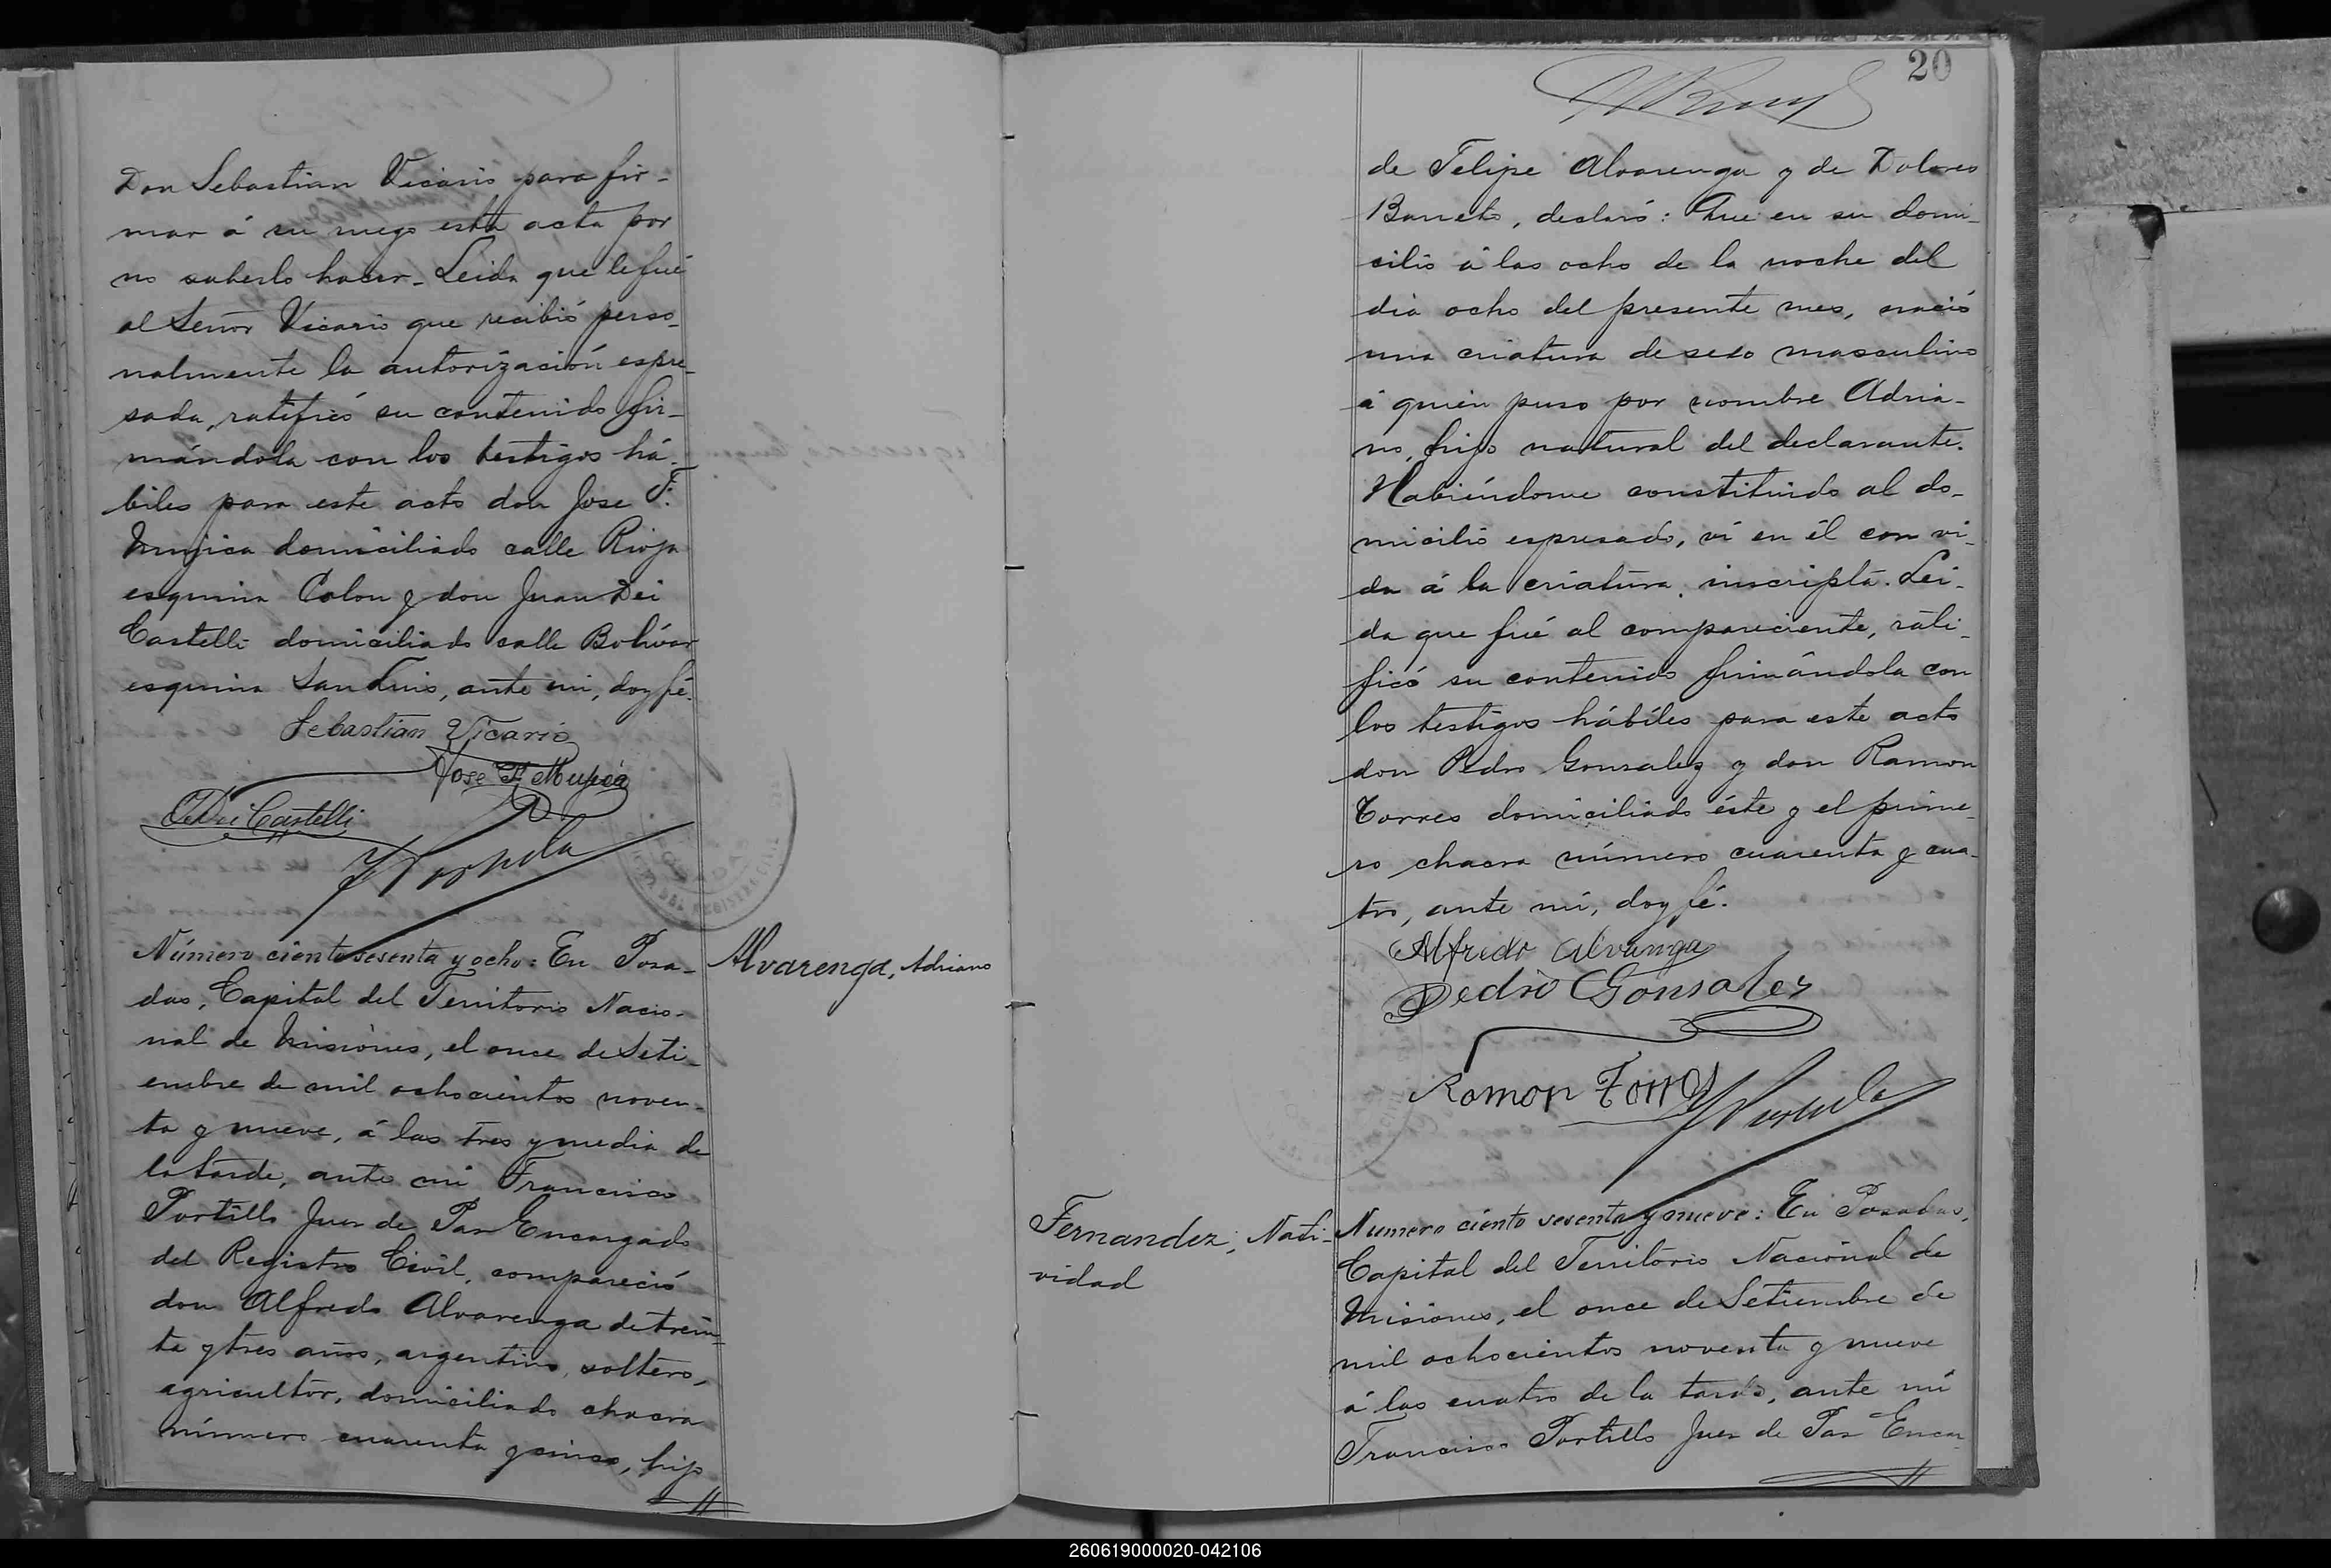 Don Sebastian Vicario para fir-
mar á su ruego esta acta por
no saberlo hacer_ Leida que le fué
al Señor Vicario que recibió perso-
nalmente la autorización espre-
sada, ratificó su contenido fir-
mándola con los testigos há-
biles para este acto don Jose F.
Mujica domiciliado calle Rioja
esquina Colon y don Juan Dei
Castelli domiciliado calle Bolívar
esquina San Luis, ante mi, doy fé.
Sebastian Vicario
Jose F. Mujica
J Dei Castelli
Número ciento sesenta y ocho: En Posa-
das, Capital del Territorio Nacio-
nal de Misiones, el once de Seti-
embre de mil ochocientos noven-
ta y nueve, á las tres y media de
la tarde, ante mi Francisco
Portillo Juez de Paz Encargado
del Registro Civil, compareció
don Alfredo Alvarenga de trein-
ta y tres años, argentino, soltero,
agricultor, domiciliado chacra
número cuarenta y cinco, hijo
Alvarenga, Adriano
20
de Felipe Alvarenga y de Dolores
Barreto, declaró: Que en su domi-
cilio á las ocho de la noche del
dia ocho del presente mes, nació
una criatura de sexo masculino
á quien puso por nombre Adria-
no, hijo natural del declarante.
Habiéndome constituido al do-
micilio espresado, ví en él con vi-
da á la criatura inscripta. Lei-
da que fué al compareciente, rati-
ficó su contenido firmándola con
los testigos hábiles para este acto
don Pedro Gonzalez y don Ramon
Torres domiciliado éste y el prime-
ro chacra número cuarenta y cua-
tro, ante mí, doy fé.
Alfredo Alvarenga
Pedro Gonsalez
Ramon Torres
Fernandez, Nati-
vidad
Numero ciento sesenta y nueve: En Posadas,
Capital del Territorio Nacional de
Misiones, el once de Setiembre de
mil ochocientos noventa y nueve
á las cuatro de la tarde, ante mí
Francisco Portillo Juez de Paz Encar-
260619000020-042106